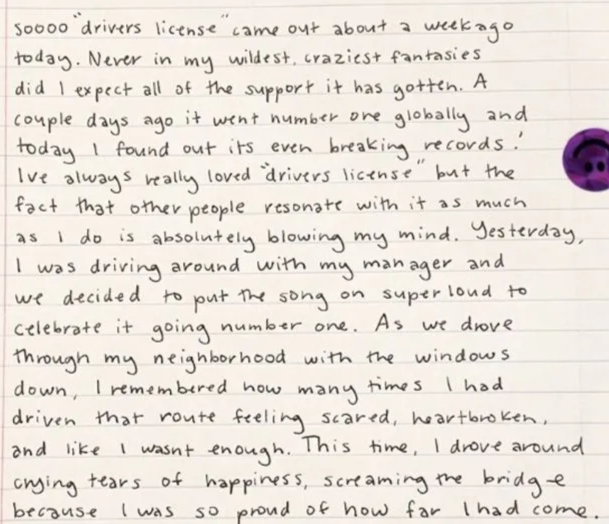 soooo "drivers license" came out about a week ago
today. Never in my wildest, craziest fantasies
did I expect all of the support it has gotten. A
couple days ago it went number one globally and
today I found out its even breaking records!
Ive always really loved "drivers license" but the
fact that other people resonate with it as much
as I do is absolutely blowing my mind. Yesterday,
I was driving around with my manager and
we decided to put the song on super loud to
celebrate it going number one. As we drove
through my neighborhood with the windows
down, I remembered how many times I had
driven that route feeling scared, heartbroken,
and like I wasnt enough. This time, I drove around
crying tears of happiness, screaming the bridge
because I was so proud of how far I had come.